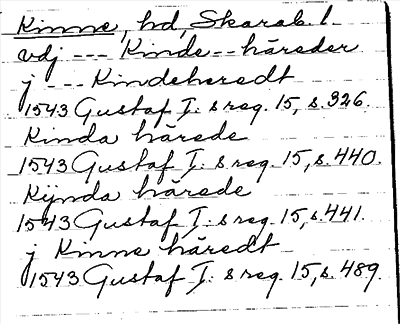 Kinne, hd, Skarab. l.
vdj --- Kinde -- häreder
j --- Kindeheredt
1543 Gustaf I: s reg. 15, s. 326.
Kinda härede
1543 Gustaf I: s reg. 15, s. 440.
Kijnda härede
1543 Gustaf I: s reg. 15, s. 441.
j Kinne häredt
1543 Gustaf I: s reg. 15, s. 489.